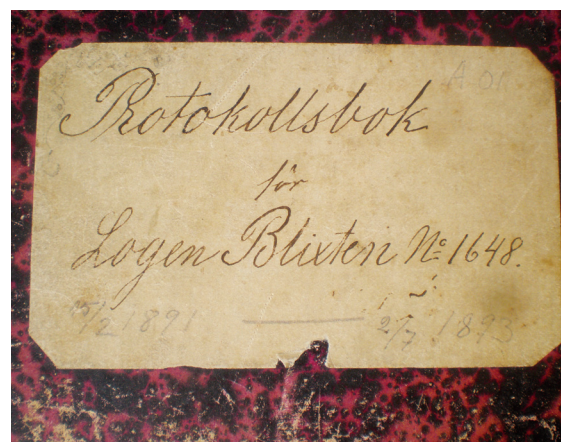 Protokollsbok
för
Logen Blixten No 1648.
15/2 1891 — 2/7 1893